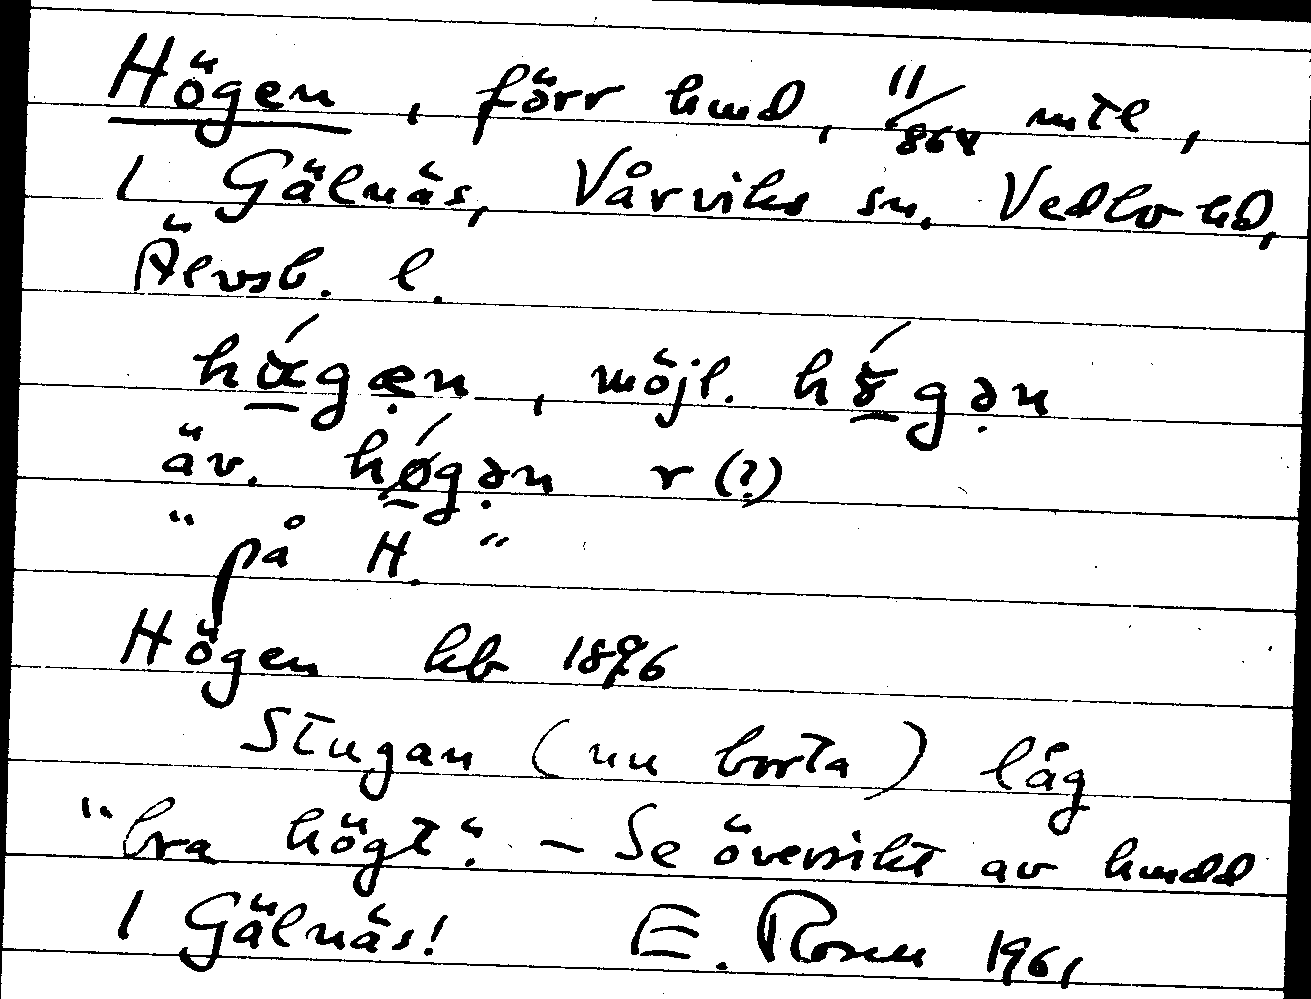 Högen, förr hmd, 11/864 mtl,
i Gälnäs, Vårviks sn. Vedbo hd,
Älvsb. l.
hǿgæ̣n, möjl. hǿgə̣n
äv. hǿgə̣n r (?)
"på H."
Högen kb 1896
Stugan (nu borta) låg
"bra högt". – Se översikt av hmdd
i Gälnäs! E. Rosen 1961